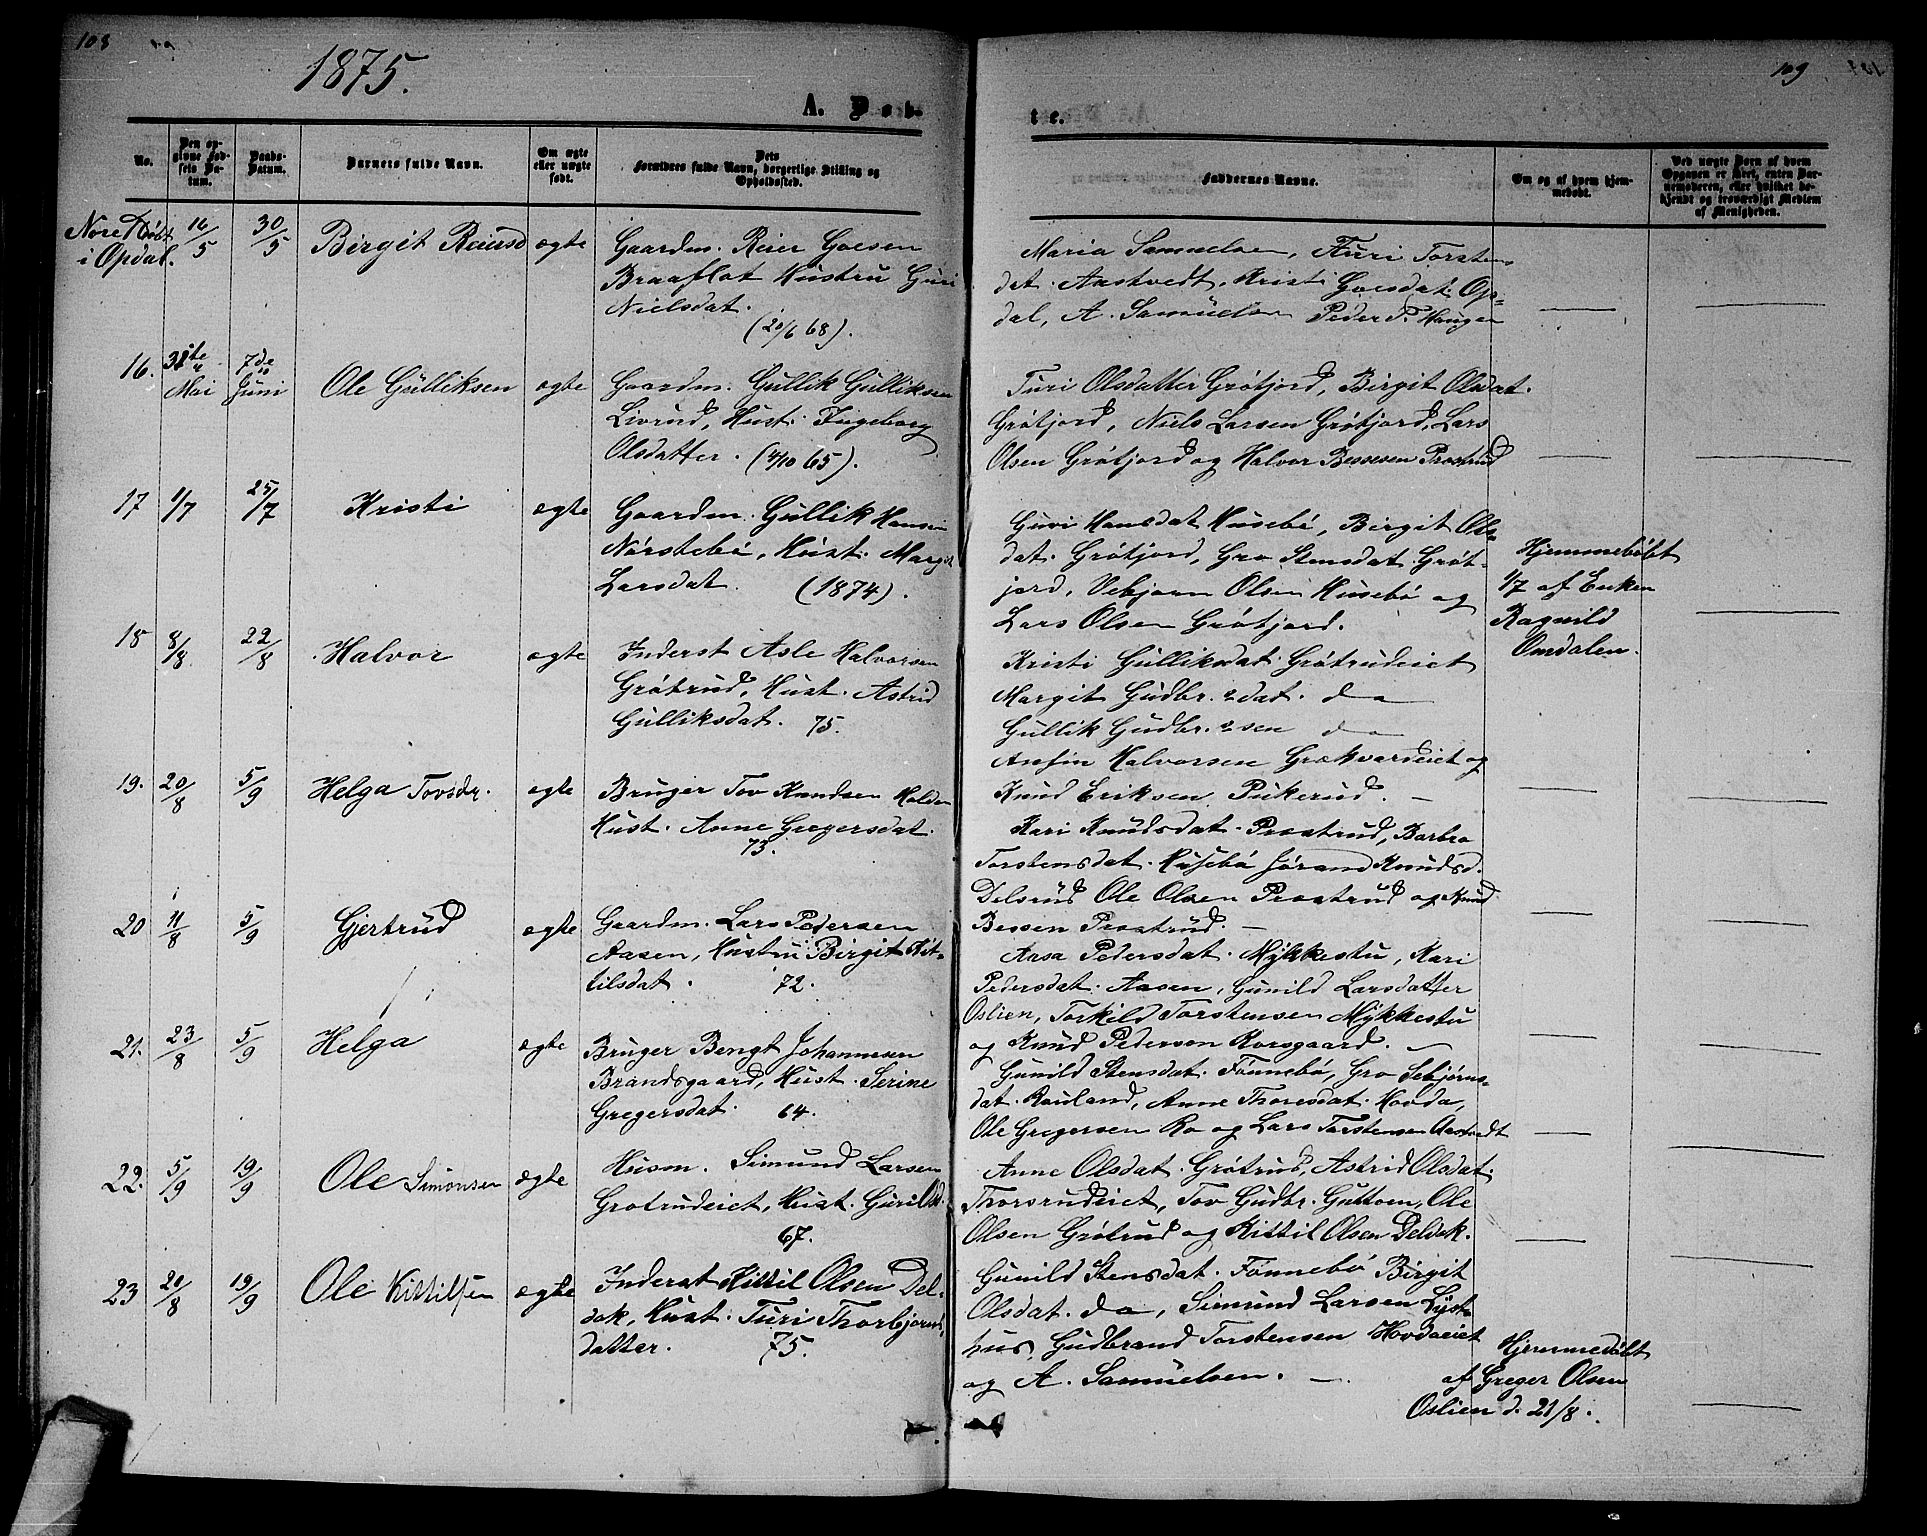 108
1875.
A. Døb-
No.
Den opgivne Fødsels Datum.
Daabs-Datum.
Barnets fulde Navn.
Om ægte eller uægte født.
Dets Forældres fulde Navn, borgerlige Stilling og Opholdssted.
Nore Født 16/5 30/5 Birgit Reiersd ægte Gaardm. Reier Goesen
i Opdal. Braaflot Hustru Guri
Nielsdat.
(20/6 68).
16. 31te Mai 7de Juni Ole Gulliksen ægte Gaardm. Gullik Gulliksen
Livrud, Hust. Ingeborg
Olsdatter. (4/10 65).
17 1/7 25/7 Kristi ægte Gaardm. Gullik Hansen
Nørstebø, Hust. Margit
Larsdat. (1874).
18 8/8 22/8 Halvor ægte Inderst Asle Halvorsen
Grøtrud, Hust. Astrid
Gulliksdat. 75.
19. 20/8 5/9 Helga Tovsdr. ægte Bruger Tov Knudsen Holden
Hust. Anne Gregersdat.
73.
20 11/8 5/9 Gjertrud ægte Gaardm. Lars Pedersen
Aasen, Hustru Birgit Kit-
tilsdat. 72.
21. 23/8 5/9 Helga ægte Bruger Bengt Johannesen
Brandsgaard, Hust. Serine
Gregersdat. 64.
22. 5/9 19/9 Ole Simonsen ægte Husm. Simund Larsen
Grøtrudeiet, Hust. Guri Olsd.
67.
23 20/8 19/9 Ole Kittilsen ægte Inderst Kittil Olsen Del-
dak, Hust. Turi Thorbjørns-
datter. 75.
109
te.
Faddernes Navne.
Om og af hvem hjemmedøbt.
Ved uægte Børn af hvem Opgaven er skeet, enten Barnemoderen, eller hvilket bekjendt og troværdigt Medlem af Menigheden.
Maria Samuelsen, Turi Torstens
dat. Aastvedt, Kristi Goesdat. Op-
dal, A. Samuelsen Peder T. Haugen
Turi Olsdatter Grøtjord, Birgit Olsdat.
Grøtjord, Niels Larsen Grøtjord, Lars
Olsen Grøtjord og Halvor Bessesen Prestrud
Guri Hansdat Husebø, Birgit Ols-
dat. Grøtjord, Gro Stensdat. Grøt-
jord, Vebjørn Olsen Husebø og
Lars Olsen Grøtjord.
Hjemmedøbt
1/7 af Enken
Ragnild
Omdalen.
Kristi Gulliksdat. Grøtrudeiet
Margit Gudbr.sdat. do
Gullik Gudbr.sen do
Anfin Halvorsen Grækvardeiet og
Knud Eriksen Pukerud. —
Kari Knudsdat. Præstrud, Barbro
Torstensdat. Husebø Jørand Knudsd.
Delsrud Ole Olsen Præstrud og Knud
Bessen Præstrud. —
Aasa Pedersdat. Mykkestu, Kari
Pedersdat. Aasen, Gunild Larsdatter
Oslien, Torkild Torstensen Mykkestu
og Knud Pedersen Korsgaard. —
Gunild Stensdat. Fønnebø, Gro Sebjørns-
dat. Rauland, Anne Thoresdat. Hovda,
Ole Gregersen Ro og Lars Torstensen Aastvedt
Anne Olsdat. Grøtrud, Astrid Olsdat.
Thorsrudeiet, Tov Gudbr. Guttoen, Ole
Olsen Grøtrud og Kittil Olsen Deldak.
Gunild Stensdat. Fønnebø Birgit
Olsdat. do, Simund Larsen Lyst-
hus, Gudbrand Torstensen Hovdaeiet
og A. Samuelsen. —
Hjemmedøbt
af Greger Olsen
Oslien d. 21/8.